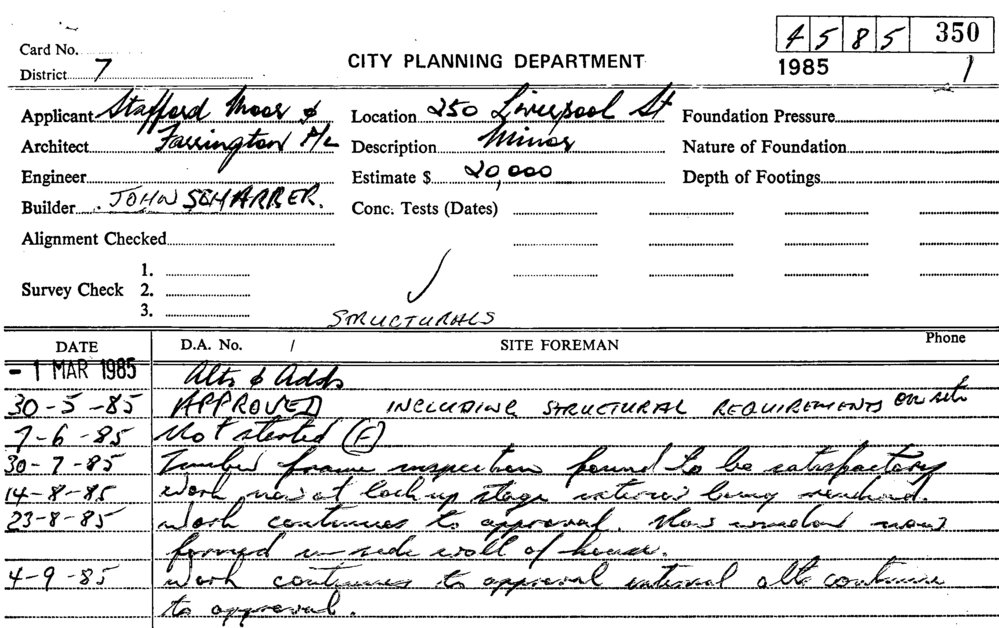 4585 350
Card No.
CITY PLANNING DEPARTMENT
1985 1
District 7
Applicant Stafford Moor & Location 250 Liverpool St Foundation Pressure
Architect Farrington P/L Description Minor Nature of Foundation
Engineer Estimate $ 20,000 Depth of Footings
Builder JOHN SCHARRER. Conc. Tests (Dates)
Alignment Checked
1.
Survey Check 2.
3.
STRUCTURALS
DATE D.A. No. / SITE FOREMAN Phone
- 1 MAR 1985 Alts & Adds
30-5-85 APPROVED INCLUDING STRUCTURAL REQUIREMENTS on site
7-6-85 Not started (F)
30-7-85 Timber frame inspection found to be satisfactory
14-8-85 Work now at lock up stage interior being rendered.
23-8-85 Work continues to approval. window now
formed in side wall of house.
4-9-85 Work continues to approval internal alts continue
to approval.